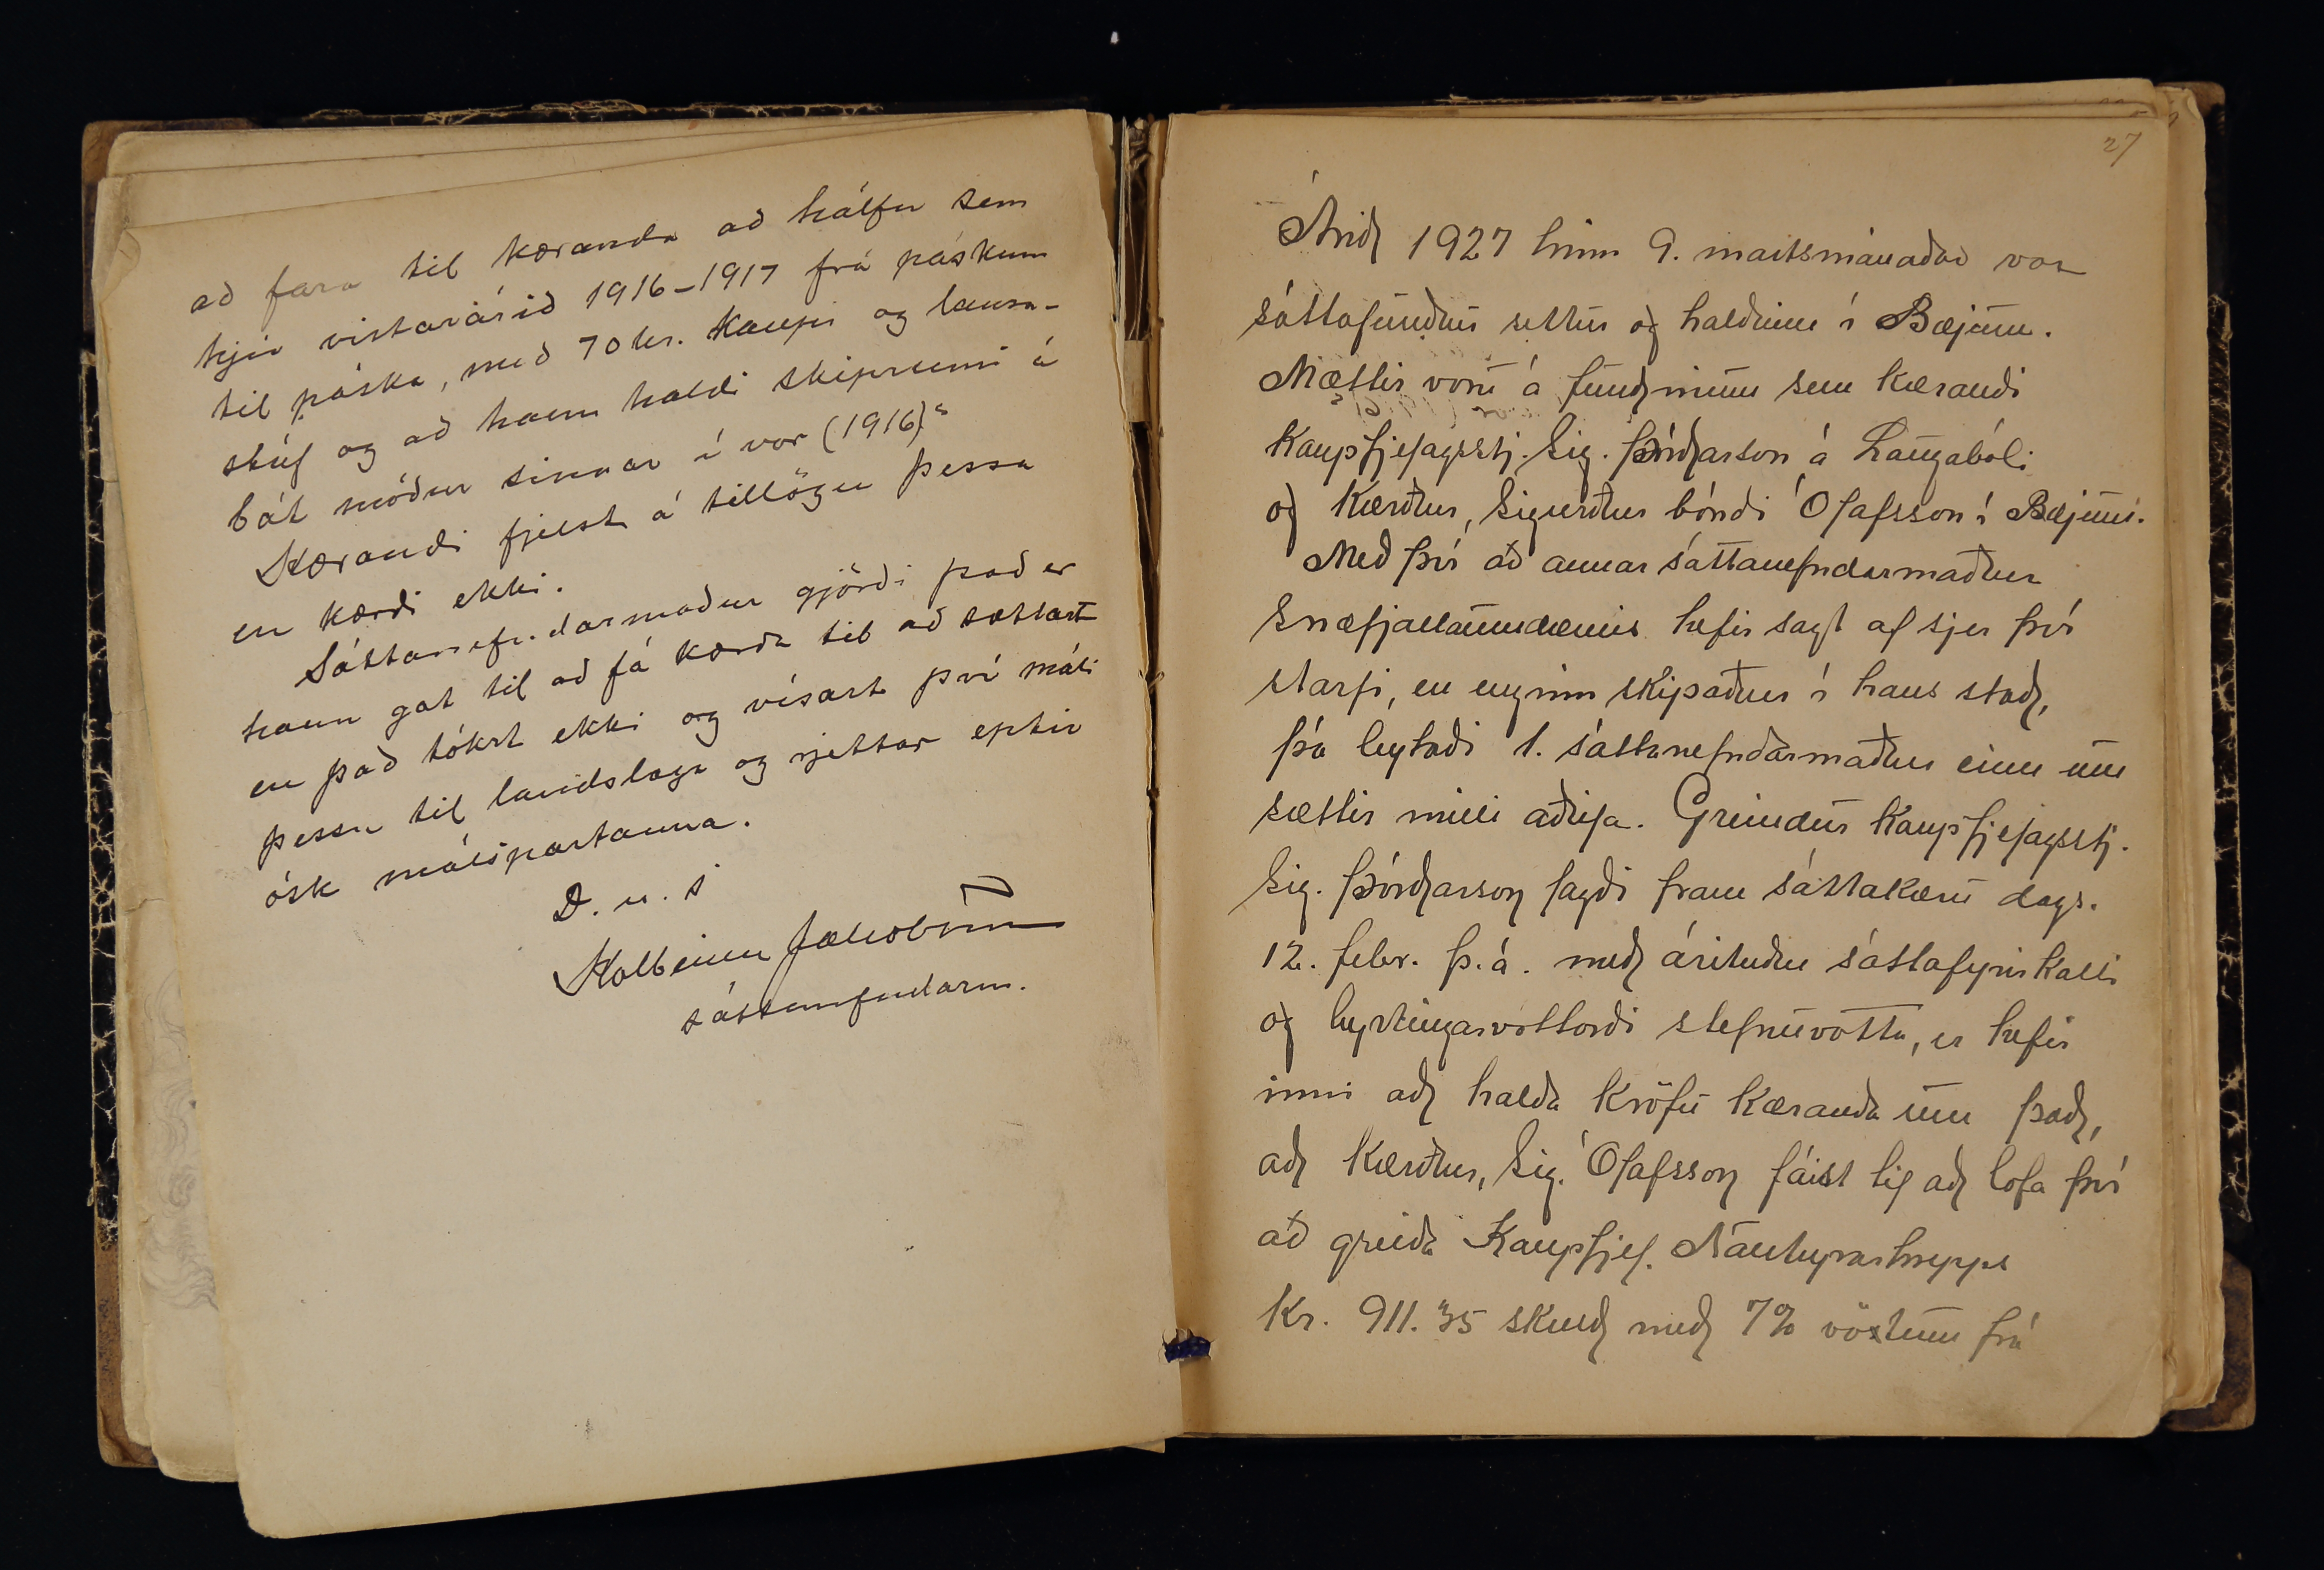 að fara til kæranda að hálfu sem
hjú vistarárið 1916-1917 frá páskum
til páska, með 70 kr. kaupi og lausa-
stúf og að hann haldi skiprúmi á
bát móður sinnar í vor (1916)"
Kærandi fjelst á tillögu þessa
en kærði ekki.
Sáttanefndarmaður gjörði það er
hann gat til að fá kærða til að sættast
en það tókst ekki og vísast því máli
þessu til landslaga og rjettar eptir
ósk málspartanna.
D. u. s
Kolbeinn Jakobsson
sáttanefndarm.
27
Árið 1927 hinn 9. maítsmánaðar var
sáttafundur settur og haldinn í Bæjum.
Mættir voru á fundinum sem kærandi
kaupfjelagsstj. Sig. Þórðarson á Laugabóli
og kærður, Sigurður bóndi Ólafsson í Bæjum.
Með því að annar sáttanefndarmaður
Snæfjallaumdæmis hefir sagt af sjer því
starfi, en enginn skipaður í hans stað,
þá leytaði 1. sáttanefndarmaður einn um
sættir milli aðila. Greindur kaupfjelagsstj.
Sig. Þórðarson lagði fram sáttakæru dags.
12. febr. þ.á. með árituðu sáttafyrirkalli
og byrtingarvottorði stefnuvotta, er hefir
inni að halda kröfu kæranda um það,
að kærður, Sig. Ólafsson fáist til að lofa því
að greiða Kaupfjel. Nauteyrarhrepps
Kr. 911.35 skuld með 7% vöxtum frá